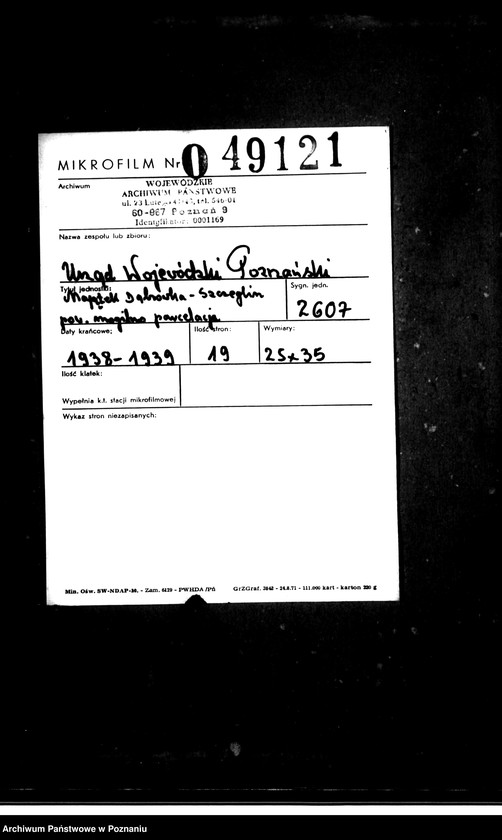 MIKROFILM Nr O 49121
Archiwum
WOJEWÓDZKIE
ARCHIWUM PAŃSTWOWE
60-967 Poznań 9
Identyfikator: 0001169
Nazwa zespołu lub zbioru:
Urząd Wojewódzki Poznański
Tytuł jednostki:
Majątek Dąbrówka - Szczeglin
pow. mogilno parcelacja
Sygn. jedn.
2607
Daty krańcowe:
1938-1939
Ilość stron:
19
Wymiary:
25x35
Ilość klatek:
Wypełnia k.t. stacji mikrofilmowej
Wykaz stron niezapisanych:
Min. Ośw. SW-NDAP-36, - Zam. 6129 - PWHDA/Pń GrZGraf. 3848 - 24.8.71 - 111.000 kart - karton 220 g
Archiwum Państwowe w Poznaniu